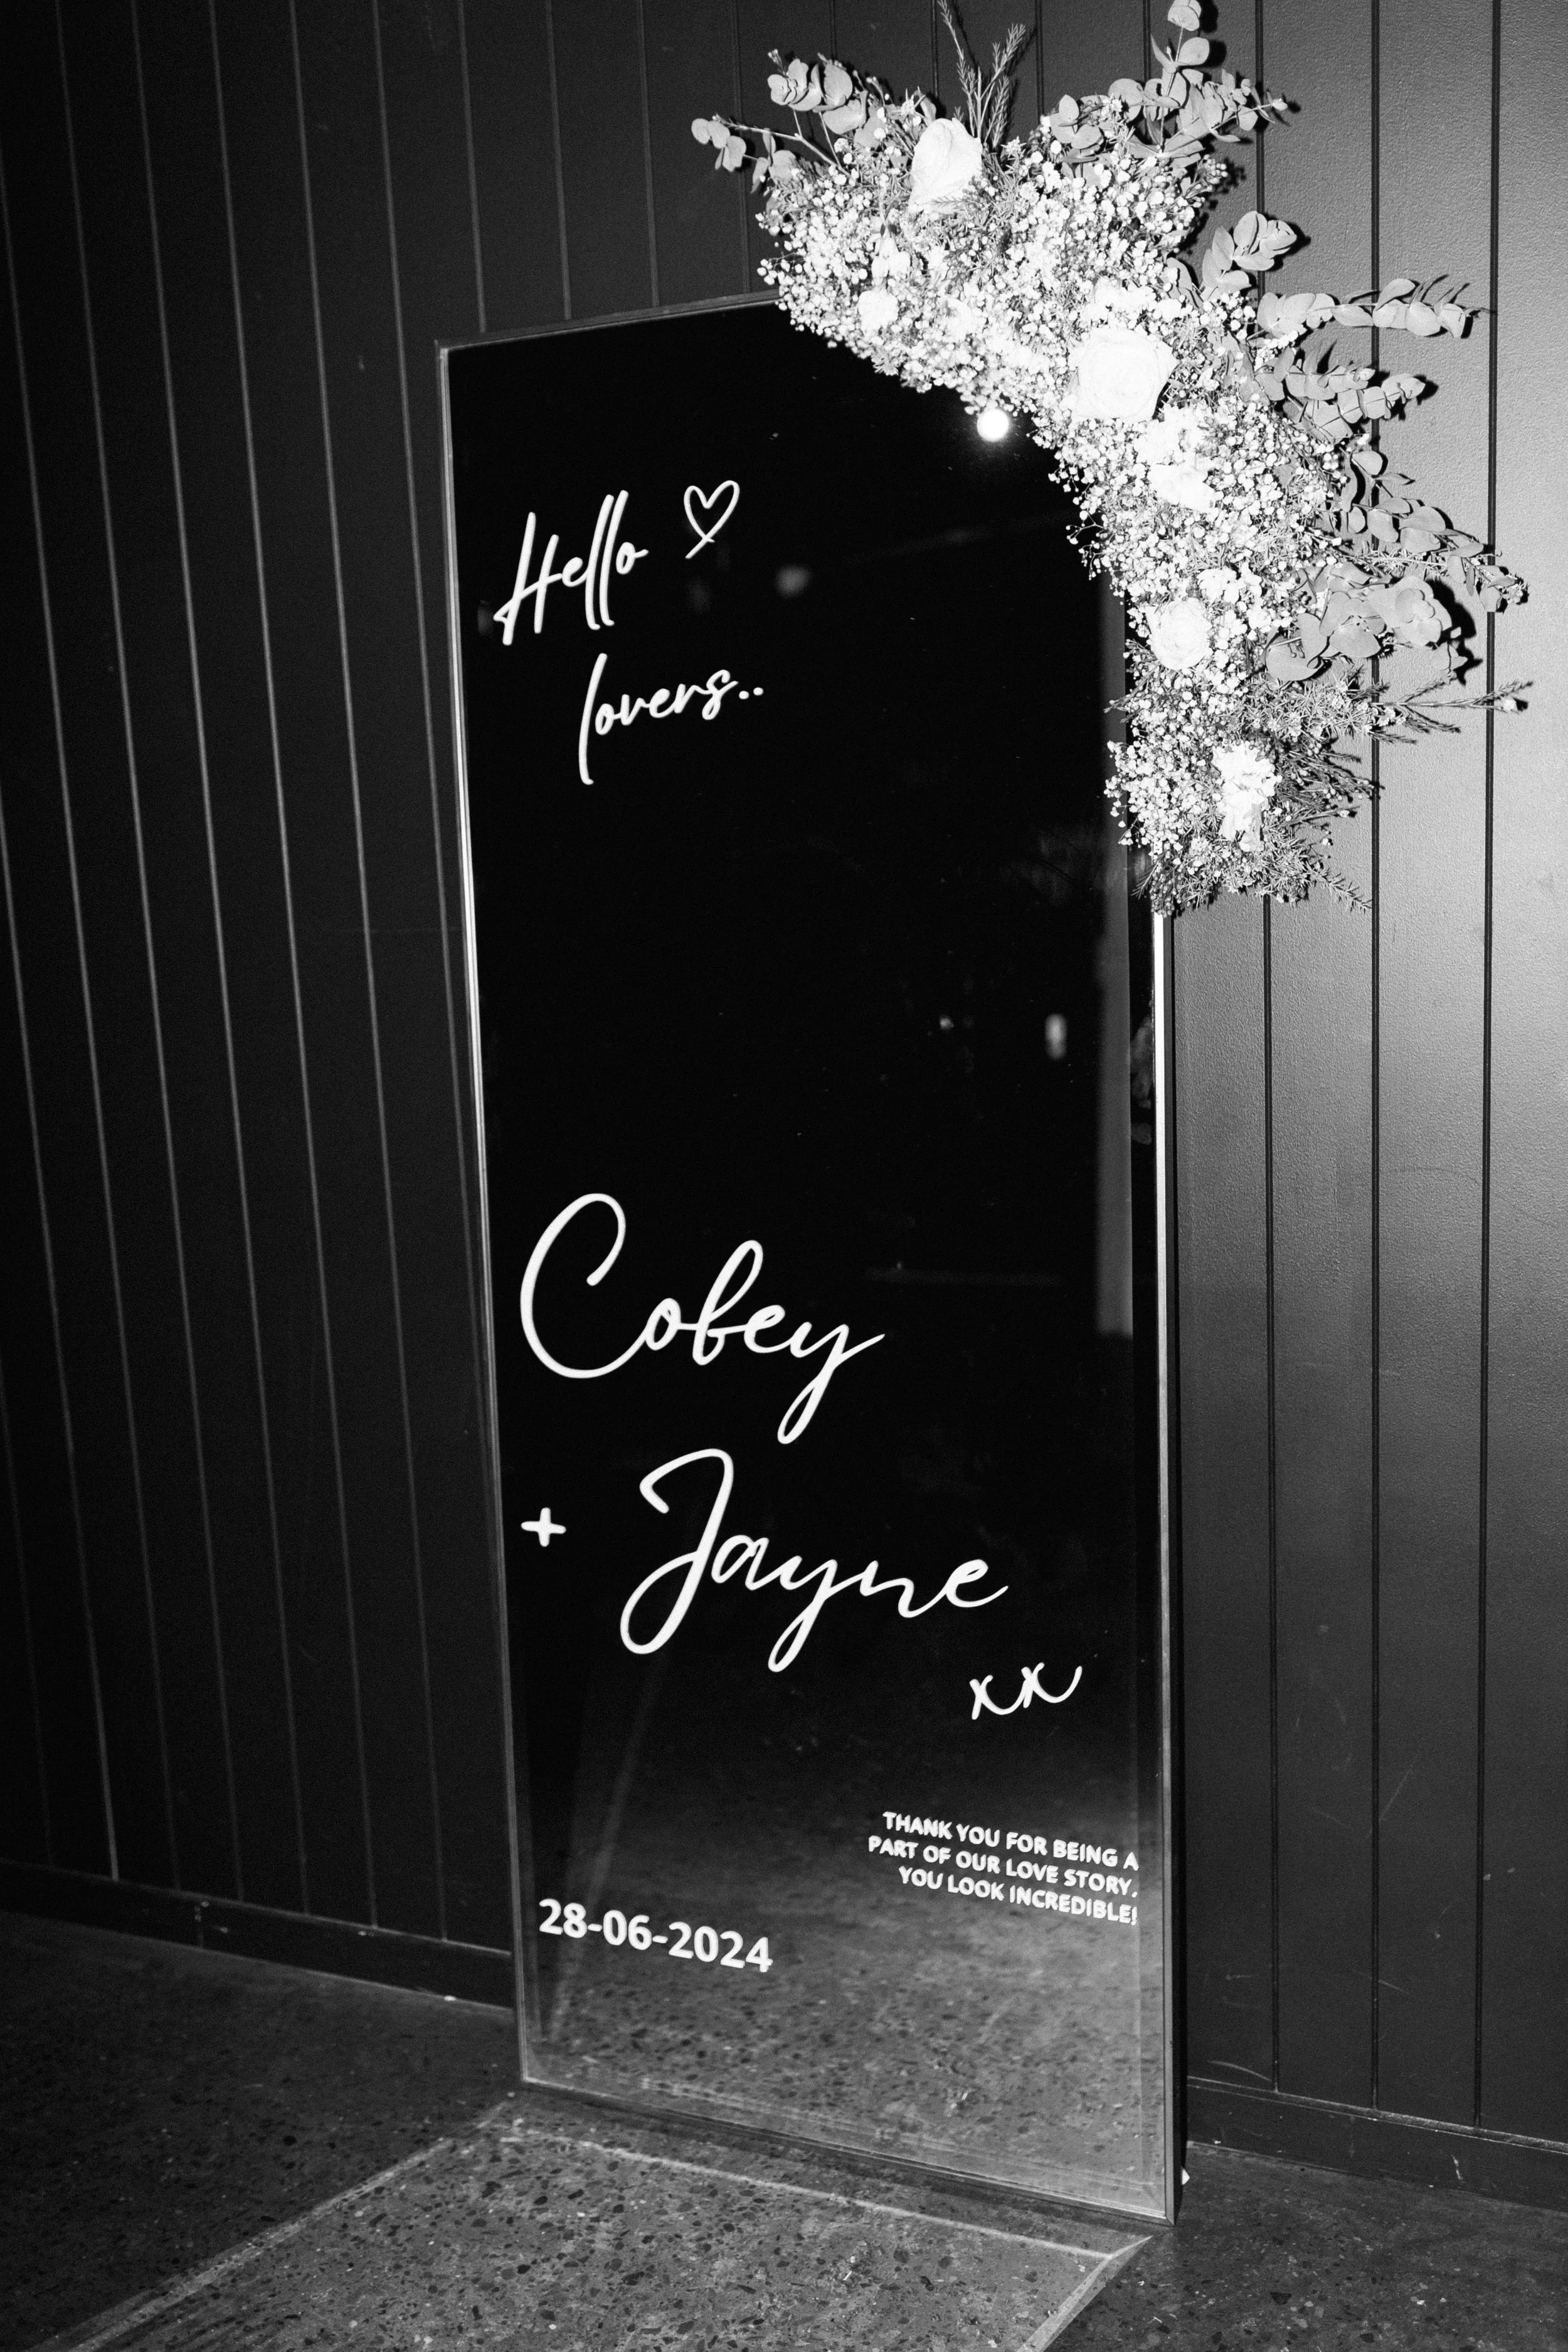 Hello ♡
lovers..
Cobey
+ Jayne
xx
THANK YOU FOR BEING A
PART OF OUR LOVE STORY,
YOU LOOK INCREDIBLE!
28-06-2024